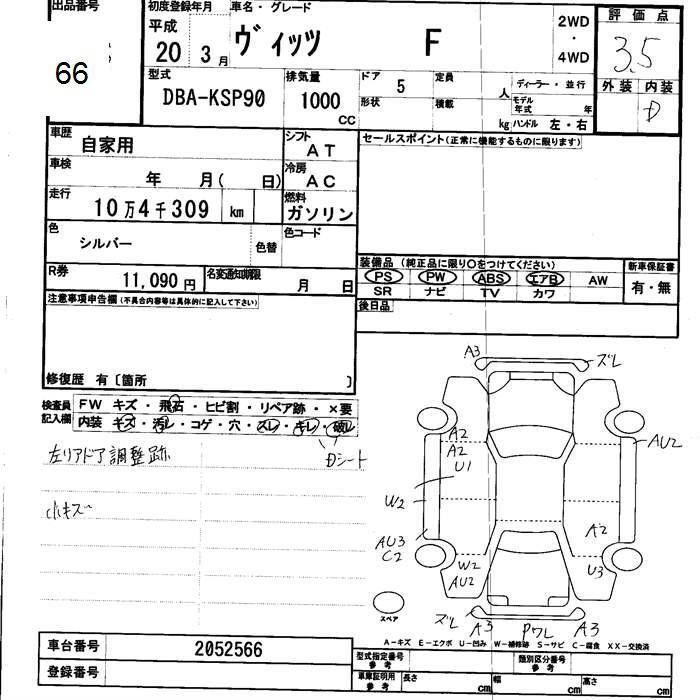 出品番号
66
初度登録年月 車名・グレード
平成 20 3月 ヴィッツ F
2WD
・
4WD
評価点
3.5
外装 内装
D
型式 DBA-KSP90
排気量 1000 CC
ドア 5 定員 人
形状 積載 kg
ディーラー・並行
モデル年式 年
ハンドル 左・右
車歴 自家用
シフト AT
車検 年 月( 日)
冷房 AC
走行 10万4千309 km
燃料 ガソリン
色 シルバー 色替
色コード
R券 11,090円
名変通知期限 月 日
セールスポイント(正常に機能するものに限ります)
装備品(純正品に限り○をつけてください)
PS PW ABS エアB AW
SR ナビ TV カワ
新車保証書
有・無
後日品
注意事項申告欄(不具合内容等は具体的に記入して下さい)
修復歴 有〔箇所 〕
検査員記入欄
FW キズ・飛石・ヒビ割・リペア跡・×要
内装 キズ・汚レ・コゲ・穴・スレ・キレ・破レ
Dシート
左リアドア調整跡
小キズ
A3 ズレ
A2
A2
U1
AU2
W2
AU3
C2
A2
W2
AU2
U3
ズレ A3 PワレA3
スペア
A-キズ E-エクボ U-凹み W-補修跡 S-サビ C-腐食 XX-交換済
車台番号 2052566
登録番号
型式指定番号 参考
類別区分番号 参考
車庫証明用 参考 長さ cm 幅 cm 高さ cm